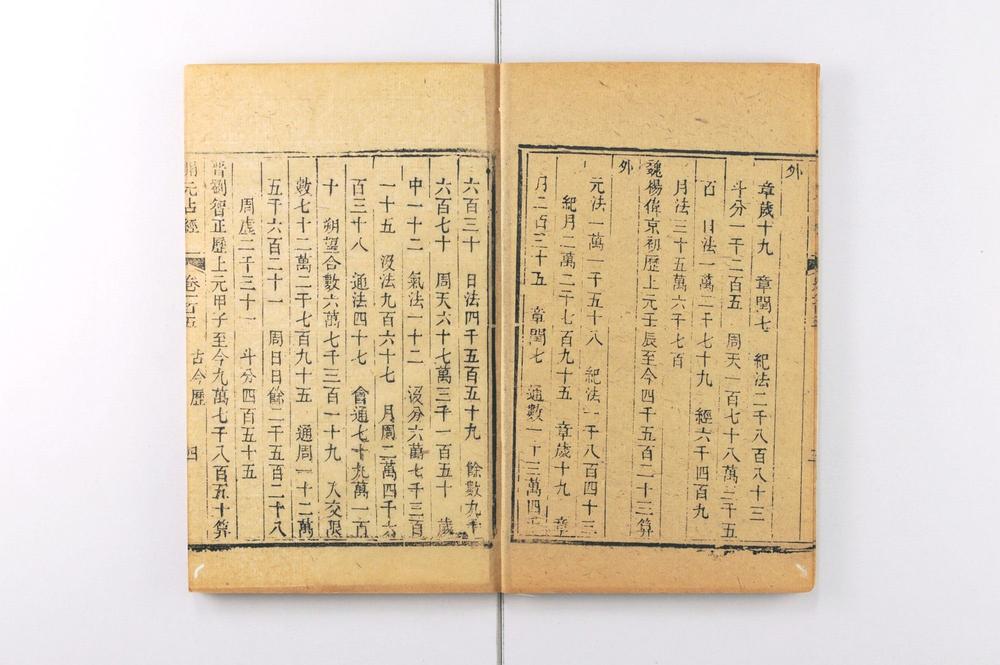 外
章歲十九 章閏七 紀法二千八百八十三
斗分一千二百五 周天一百七十八萬三千五
百 日法一萬二千七十九 經六千四百九
月法三十五萬六千七百
魏楊偉京初歷上元壬辰至今四千五百二十三算
外
元法一萬一千五十八 紀法一千八百四十三
紀月二萬二千七百九十五 章歲十九 章
月二百三十五 章閏七 通數一十三萬四千
六百三十 日法四千五百五十九 餘數九千
六百七十 周天六十七萬三千一百五十 歲
中一十二 氣法一十二 沒分六萬七千三百
一十五 沒法九百六十七 月周二萬四千六
百三十八 通法四十七 會通七十九萬一百
十 朔望合數六萬七千三百一十九 入交限
數七十二萬二千七百九十五 通周一十二萬
五千六百二十一 周日日餘二千五百二十八
周虛二千三十一 斗分四百五十五
晉劉智正歷上元甲子至今九萬七千八百五十算
開元占經 卷一百五 古今歷 四